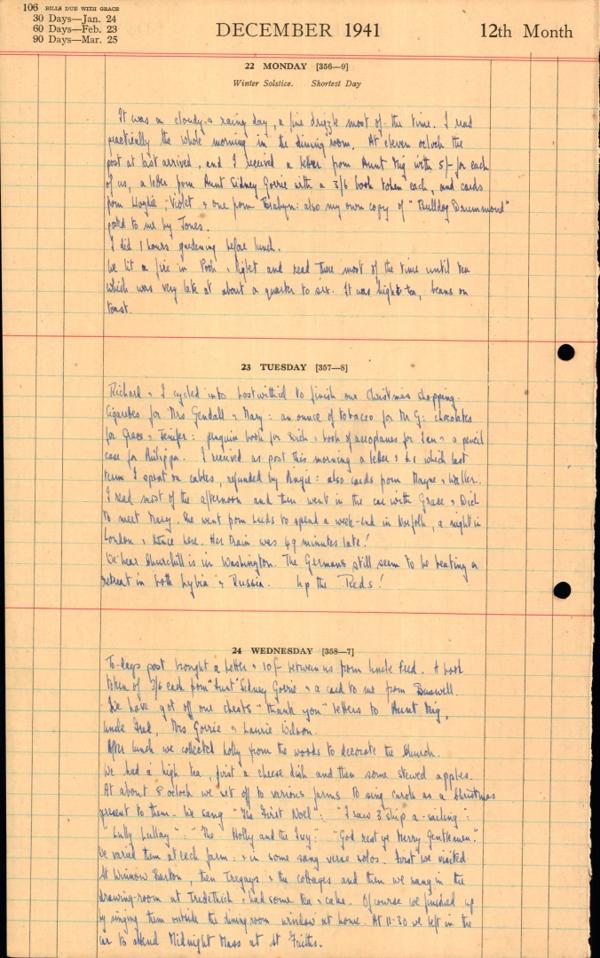 106 BILLS DUE WITH GRACE
30 Days—Jan. 24
60 Days—Feb. 23
90 Days—Mar. 25
DECEMBER 1941
12th Month
22 MONDAY [356—9]
Winter Solstice. Shortest Day
It was a cloudy & rainy day, a fine drizzle most of the time. I read
practically the whole morning in the dining room. At eleven oclock the
post at last arrived, and I received a letter from Aunt Mig with 5/- for each
of us, a letter from Aunt Sidney Gorrie with a 3/6 book token each, and cards
from & Violet & one from : also my own copy of "Bulldog Drummond"
posted to me by Jones.
I did 1 hours gardening before lunch.
We lit a fire in & and read there most of the time until tea
which was very late at about a quarter to six. It was high tea, beans on
toast.
23 TUESDAY [357—8]
Richard & I cycled into to finish our Christmas shopping.
Cigarettes for Mrs Gendall & Mary: an ounce of tobacco for Mr G: chocolates
for Grace & Jenifer: penguin book for Dick & book of aeroplanes for Ian & a pencil
case for Philippa. I received as post this morning a letter & which last
term I spent on cables, refunded by : also cards from & .
I read most of the afternoon and then went in the car with Grace & Dick
to meet Mary. She went from Leeds to spend a week-end in Norfolk, a night in
London & hence here. Her train was 49 minutes late!
We hear Churchill is in Washington. The Germans still seem to be beating a
retreat in both Lybia & Russia. Up the Reds!
24 WEDNESDAY [358—7]
To-days post brought a letter & 10/- between us from Uncle Fred. A book
token of 3/6 each from "Aunt" Sidney Gorrie & a card to me from Buswell.
We have got off our chests "thank you" letters to Aunt Mig,
Uncle Fred, Mrs Gorrie & Laurie Wilson.
After lunch we collected holly from the woods to decorate the Church.
We had a high tea, first a cheese dish and then some stewed apples.
At about 8 oclock we set off to various farms to sing carols as a Christmas
present to them. We sang "The First Noel": "I saw 3 ship a-sailing":
"Lully Lullay": "The Holly and the Ivy": "God rest ye Merry Gentlemen."
We varied them at each farm & in some sang verse solos. First we visited
St Winnow Barton, then & the cottages and then we sang in the
drawing-room at Tredethick & had some tea & cake. Of course we finished up
by singing them outside the dining room window at home. At 11-30 we left in the
car to attend Midnight Mass at St